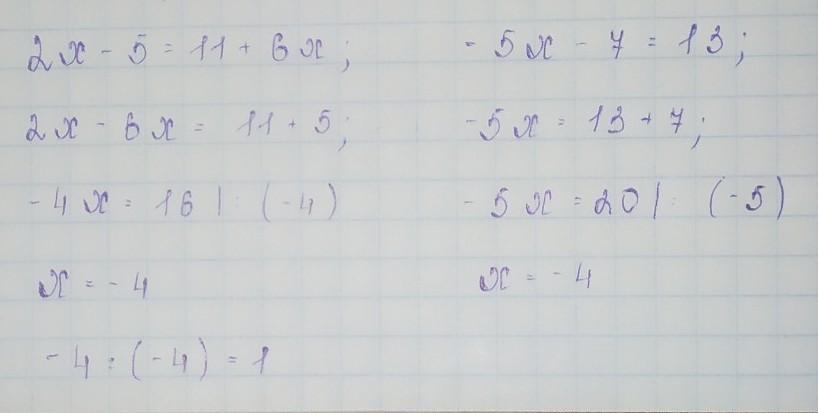 2x - 5 = 11 + 6x;
2x - 6x = 11 + 5;
-4x = 16 | : (-4)
x = -4
-4 : (-4) = 1
-5x - 7 = 13;
-5x = 13 + 7;
-5x = 20 | : (-5)
x = -4